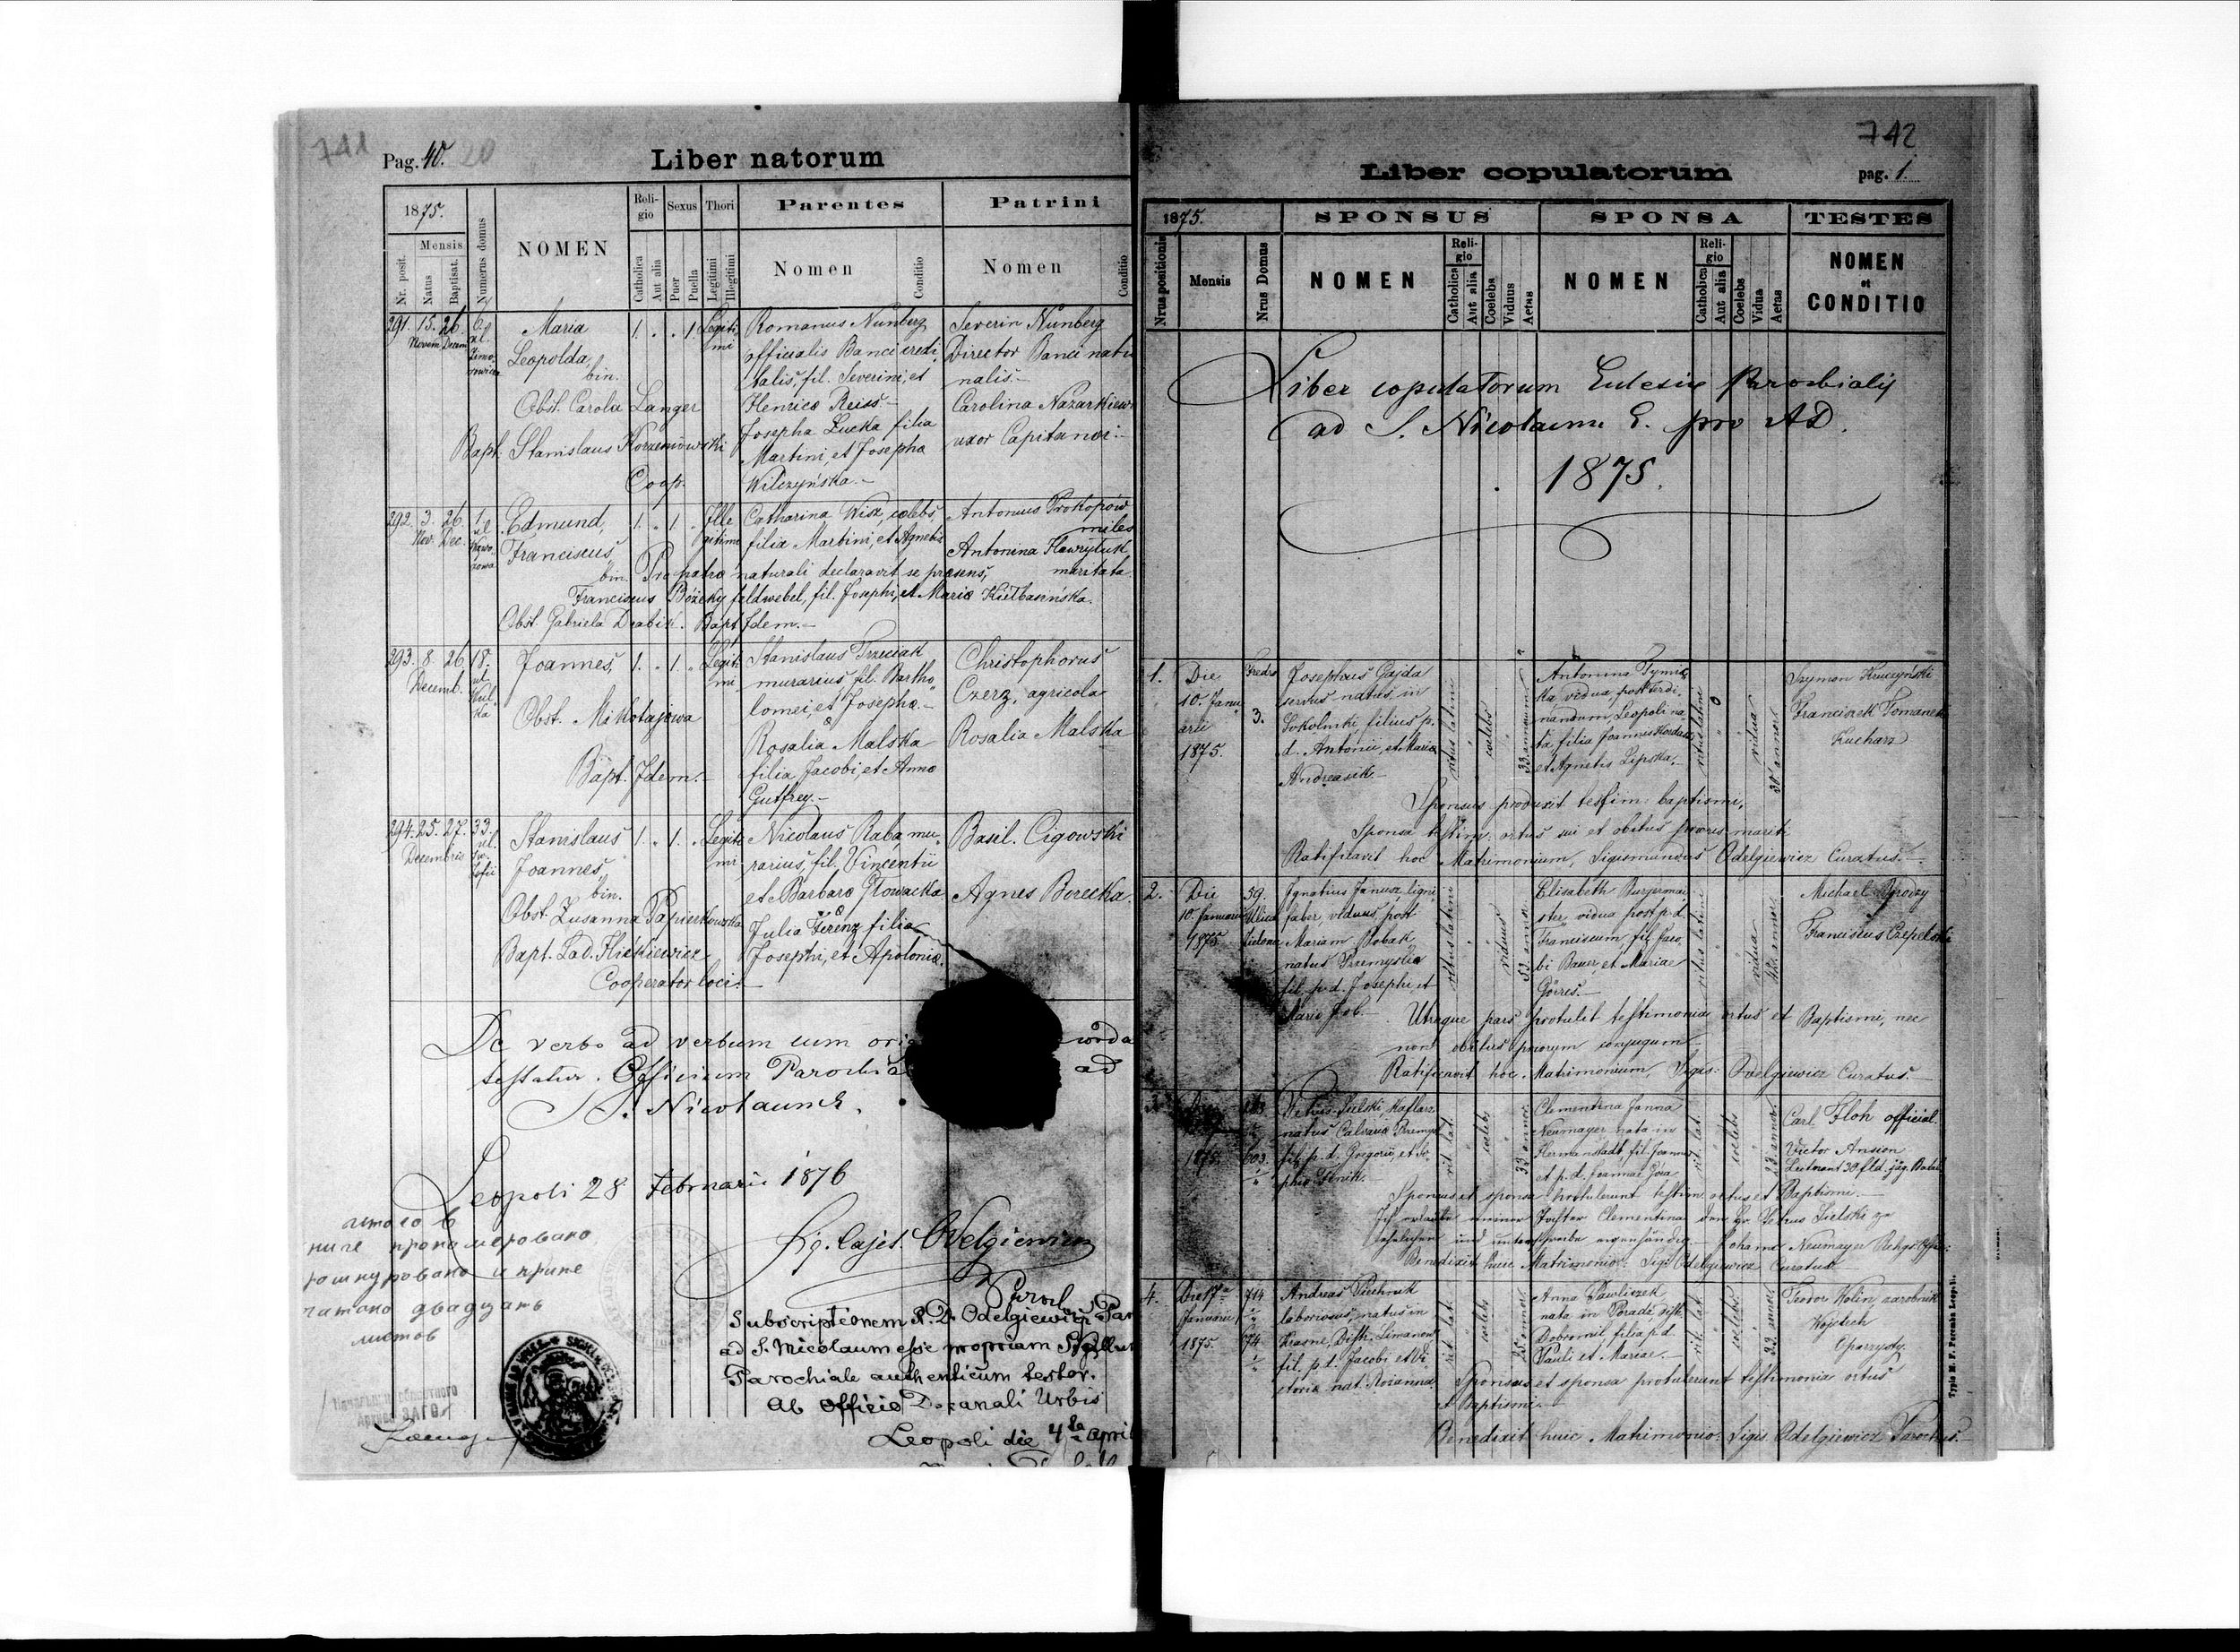 741
Pag. 40. 20
Liber natorum
1875.
Nr. posit.
Mensis
Natus
Baptisat.
Numerus domus
NOMEN
Religio
Catholica
Aut alia
Sexus
Puer
Puella
Thori
Legitimi
Illegitimi
Parentes
Nomen
Conditio
Patrini
Nomen
Conditio
291. 15. 26. Maria 1. . . 1. Legiti Romanus Nunberg Severin Nunberg
Novem Decem Leopolda, mi officialis Banci credi Director Banci natio
bin. talis, fil. Severini, et nalis.-
Obst. Carola Langer Henrica Reiss.- Carolina Nazarkiewi
Bapt. Stanislaus Korzeniowski Josepha Lucka filia uxor Capitanei.-
Martini, et Josepha
Coop. Wilczyńska.-
292. 3. 26. 1. Edmund, 1. . 1. . Ille Catharina Wisz, cœlebs, Antonius Prokopów
Nov. Dec. Franciscus gitimi filia Martini, et Agnetis miles
bin. Antonina Hawryluk
Pro patre naturali declaravit se præsens, maritata
Franciscus Bożeky feldwebel, fil. Josephi, et Maria Kiełbasińska.
Obst. Gabriela Drabik. Bapt. Idem.-
293. 8. 26. 18. Joannes, 1. . 1. . Legiti Stanislaus Trzeciak Christophorus
Decemb. ul. mi murarius, fil. Bartho Czerz, agricola
Wul ka lomei, et Josepha.-
Obst. Mikołajewa Rosalia Malska Rosalia Malska
filia Jacobi, et Anna
Bapt. Idem.- Gutfrey.-
294. 25. 27. 33. Stanislaus 1. . 1. . Legiti Nicolaus Raba, mu Basil. Cigowski
Decembris ul. Joannes, mi rarius, fil. Vincentii
Zofii bin. et Barbara Głowacka Agnes Borecka.
Obst. Zusanna Papierkowska Julia Ferenz filia
Bapt. Lad. Hickiewicz Josephi, et Apolonia.
Cooperator loci.-
De verbo ad verbum cum orig
testatur. Officium Parochia ad
S. Nicolaum L.
Leopoli 28 Februarii 1876
Sig. Cajet. Odelgiewicz
Paroch
Subscriptionem R. D. Odelgiewicz Par
ad S. Nicolaum esse propriam Sigillum
Parochiale authenticum testor.
Ab Officio Decanali Urbis
Leopoli die 4ta Apri
пронумеровано
двадцать
листов
742
Liber copulatorum
pag. 1.
1875.
Nrus positionis
Mensis
Nrus Domus
SPONSUS
NOMEN
Religio
Catholica
Aut alia
Coelebs
Viduus
Aetas
SPONSA
NOMEN
Religio
Catholica
Aut alia
Coelebs
Vidua
Aetas
TESTES
NOMEN
et
CONDITIO
Liber copulatorum Eclesiæ Parochialis
ad S. Nicolaum L. pro AD.
1875.
1. Die Josephus Gajda Antonina Szymon Kruczyński
10. Janu servus natus in ka vidua post Ferdi Franciszek Tomanek
arii 3. Sokolniki filius p. nandum, Leopoli na Kucharz
1875. d. Antonii, et Maria ta filia Joannis
Andreasik.- et Agnetis Lipska.-
ritus latini coelebs 33 annorum ritus latini vidua
Sponsus produxit testim: baptismi,
Sponsa testim: ortus sui et obitus prioris mariti
Ratificavit hoc Matrimonium, Sigismundus Odelgiewicz Curatus.-
2. Die 59. Ignatius Janusz, ligni Elisabeth Burgermei Michael
10. Januarii Ulica faber, viduus, post ster, vidua post p. d. Franciscus Czepelski
1875. Zielona Mariam Bobak, Franciscum, fil. Jaco
natus Przemyslia bi Bauer, et Mariae
fil. p. d. Josephi, et Görres.-
Maria Job.-
ritus latini viduus 53 annor. ritus latini vidua annor.
Utraque pars protulit testimonia ortus et Baptismi, nec
non obitus priorum conjugum.-
Ratificavit hoc. Matrimonium, Sigis: Odelgiewicz Curatus.-
3. Petrus Sielski, Kaflarz Clementina Janna Carl Floh official.
natus Calvaria Przemysl Neumayer nata in Victor Ansion
1875. 603. fil. p. d. Gregorii, et So Hermanstadt, fil. Joannis Leutnant 30 fld. jäg. Batal.
phia et p. d. Joanna
rit. lat. coelebs 33 annor. rit. lat. coelebs 23 annor.
Sponsus et sponsa protulerunt testim: ortus et Baptismi.-
Ich erlaube meiner Tochter Clementina den Hr. Petrus Sielski zu
ehelichen und unterschreibe eigenhändig.- Johann Neumayer
Benedixit huic Matrimonio: Sigis Odelgiewicz Curatus
4. Die 17a 714 Andreas Piechnik Anna Pawliszek Teodor Kolin, zarobnik
Januarii laboriosus, natus in nata in Dist. Wojciech
1875. 674 Krasne, Distr. Limanow Dobromil, filia p. d.
fil. p. d. Jacobi et Vi Pauli et Mariae.-
ctoria nat. Rosanna
rit. lat. coelebs 25 annor. rit. lat. coelebs 23 annor.
Sponsus et sponsa protulerunt testimonia ortus
et Baptismi.-
Benedixit huic Matrimonio: Sigis Odelgiewicz Parochus.-
Typis M. F. Poremba Leopoli.